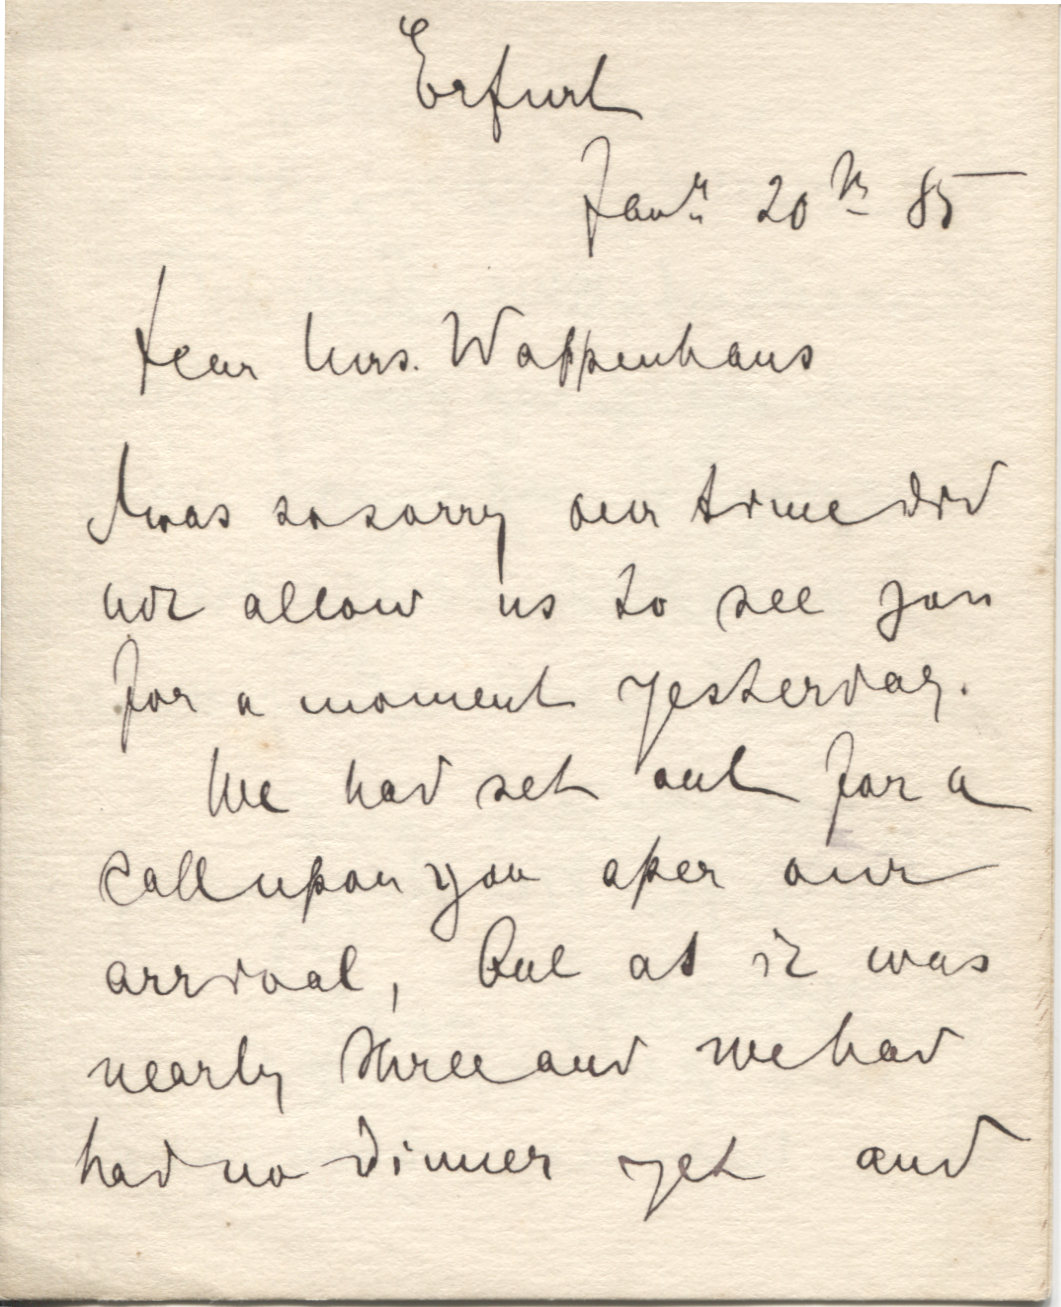 Erfurt
Jan.ʳ 20th 85
Dear Mrs. Wappenhans
I was so sorry our time did
not allow us to see you
for a moment yesterday.
We had set out for a
call upon you after our
arrival, but as it was
nearly three and we had
had no dinner yet and